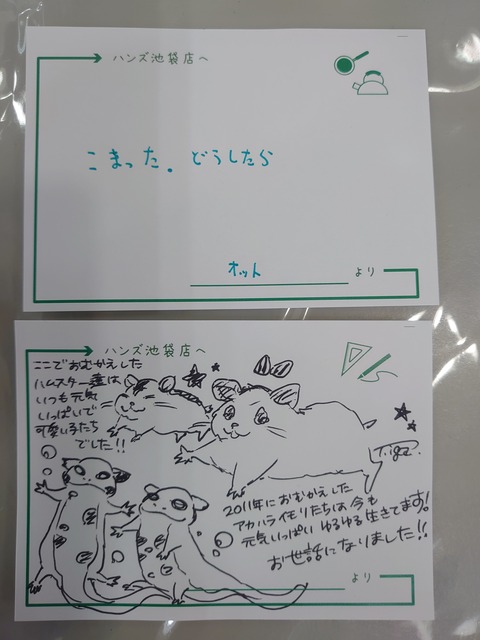 ハンズ池袋店へ
こまった。どうしたら
オット
より
ハンズ池袋店へ
ここでおむかえした
ハムスター達は
いつも元気
いっぱいで
可愛い子たち
でした!!
2011年におむかえした
アカハライモリたちは今も
元気いっぱいゆるゆる生きてます!
お世話になりました!!
より